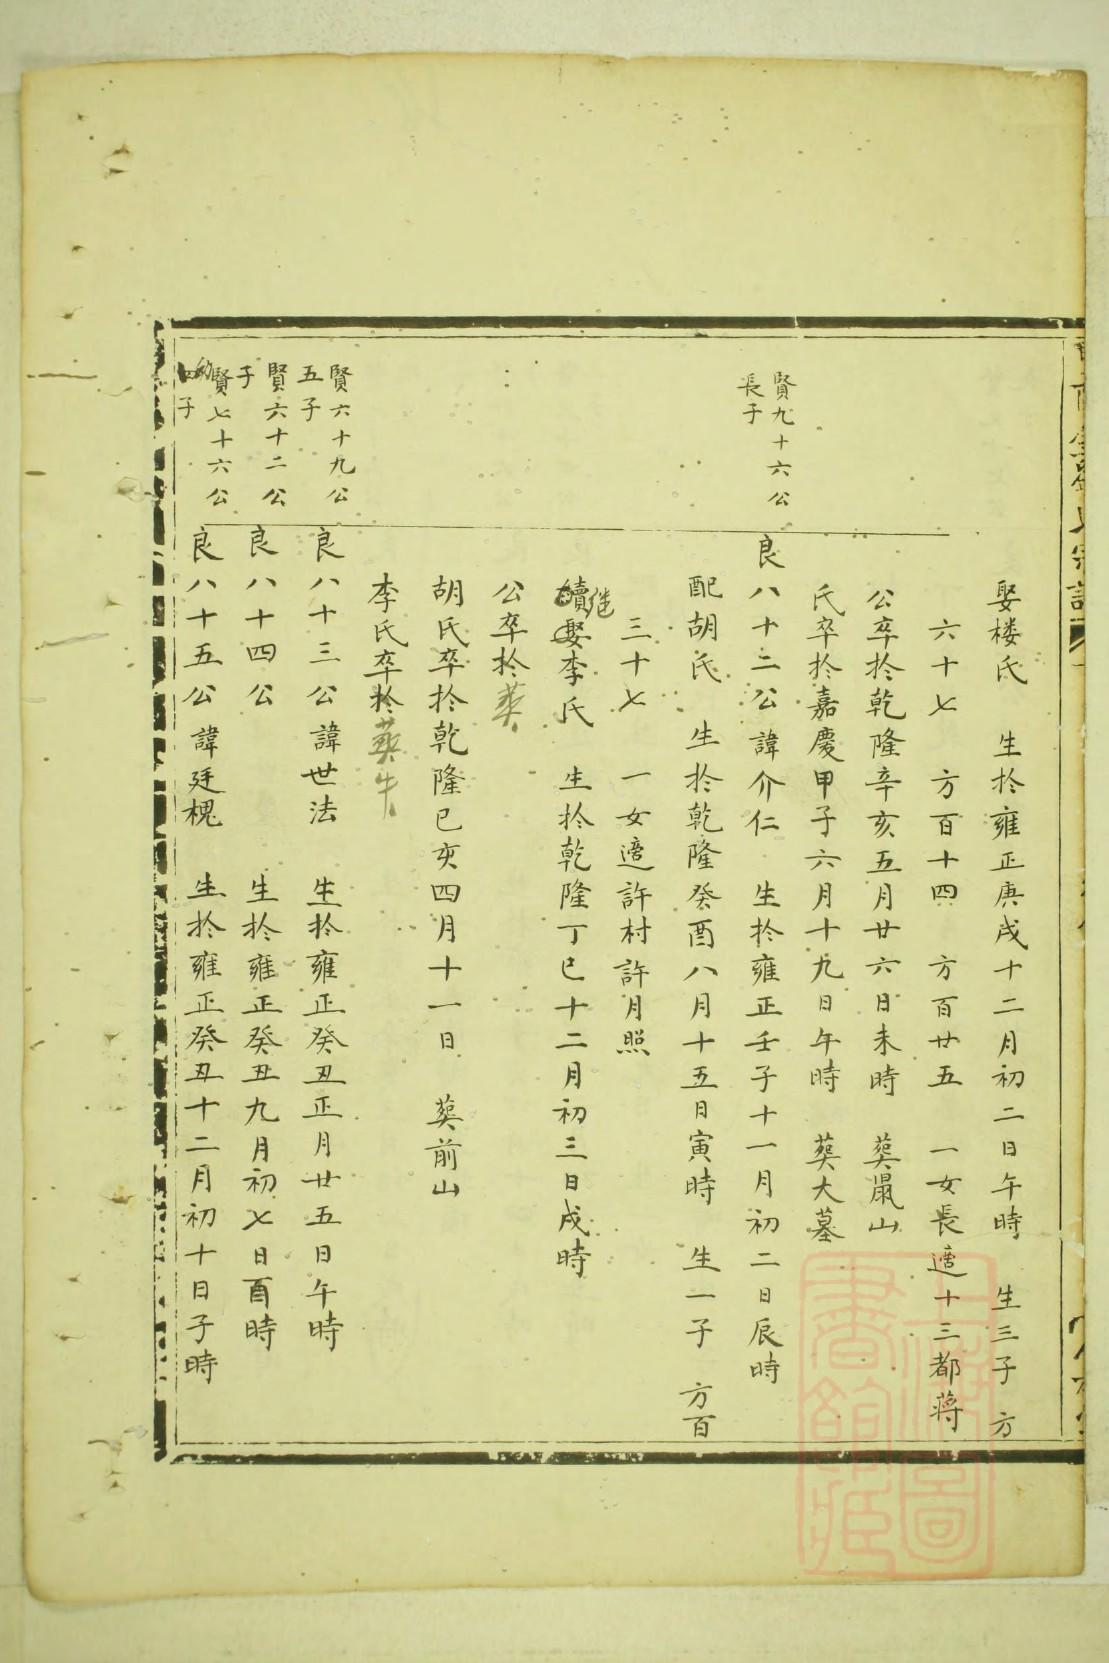 娶楼氏 生於雍正庚戌十二月初二日午時 生三子 方
六十七 方百十四 方百廿五 一女長適十三都蔣
公卒於乾隆辛亥五月廿六日未時 葬鼠山
氏卒於嘉慶甲子六月十九日午時 葬大墓
賢九十六公
長子
良八十二公諱介仁 生於雍正壬子十一月初二日辰時
配胡氏 生於乾隆癸酉八月十五日寅時 生一子 方百
三十七 一女適許村許月照
继
續娶李氏 生於乾隆丁巳十二月初三日戌時
公卒於葬
胡氏卒於乾隆己亥四月十一日 葬前山
李氏卒於葬牛
賢六十九公
五子
良八十三公諱世法 生於雍正癸丑正月廿五日午時
賢六十二公
子
良八十四公 生於雍正癸丑九月初七日酉時
賢七十六公
四子
良八十五公諱廷槐 生於雍正癸丑十二月初十日子時
上海圖
書館藏